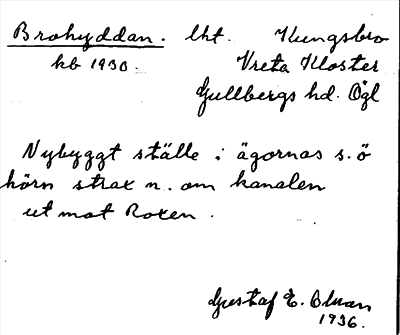 Brohyddan. lht. Kungsbro
kb 1930. Vreta Kloster
Gullbergs hd. Ögl
Nybyggt ställe i ägornas s.ö
hörn strax n. om kanalen
ut mot Roxen.
Gustaf E. Olman
1936.